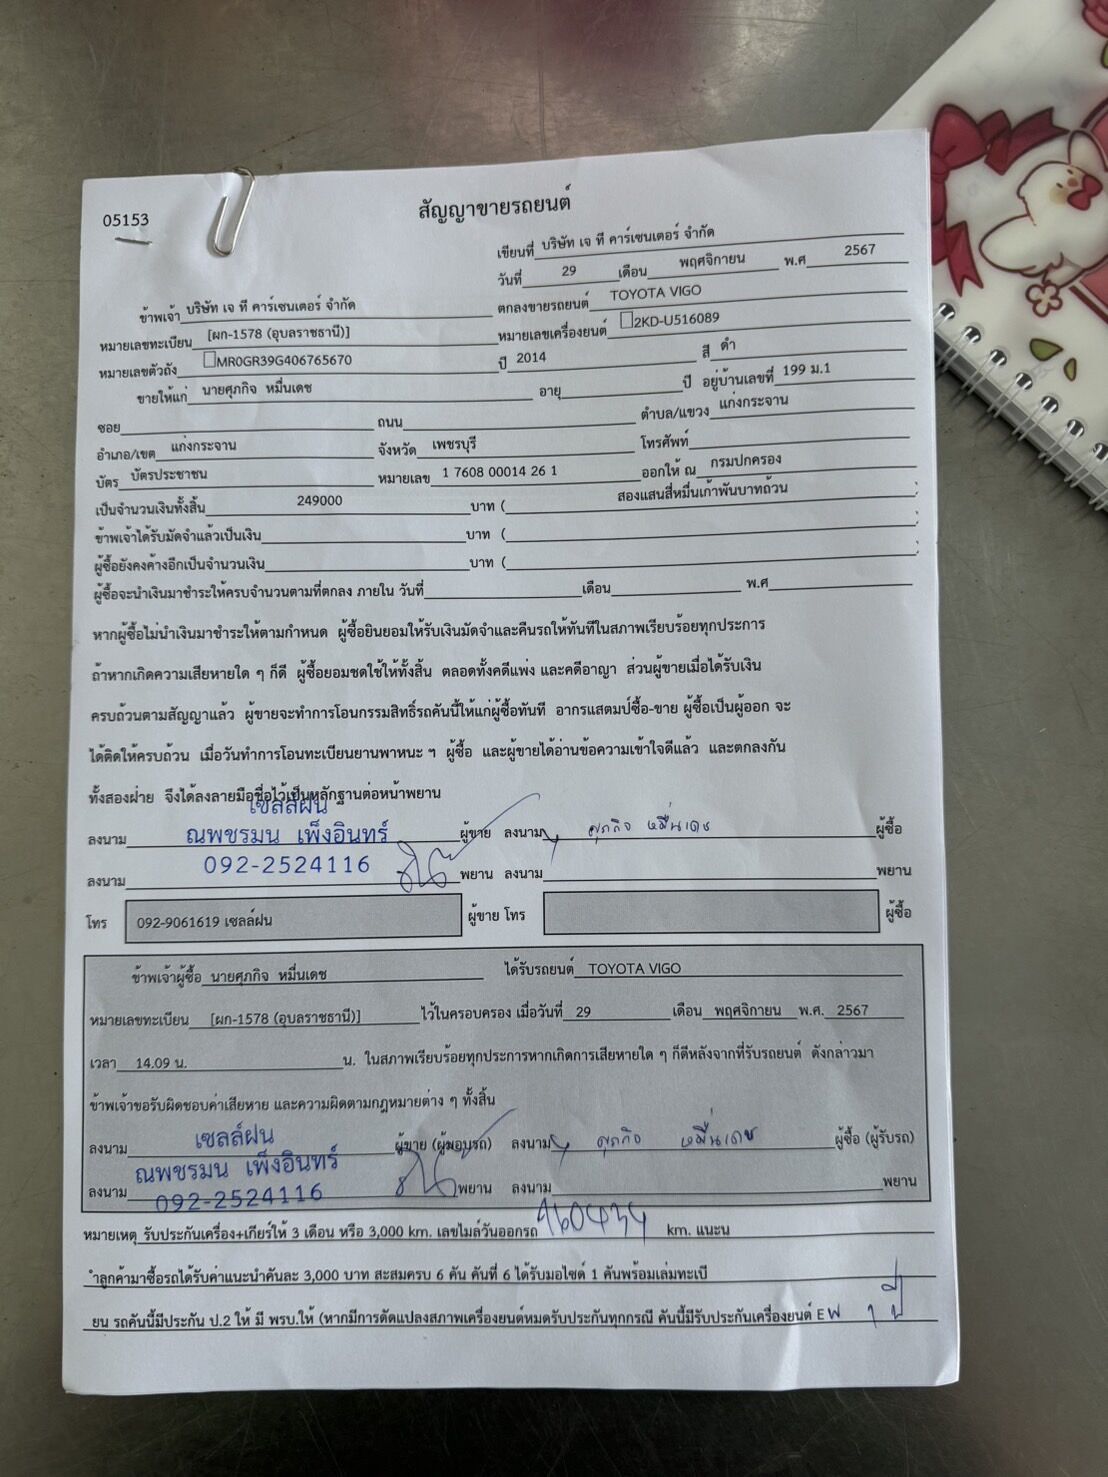 05153
สัญญาขายรถยนต์
เขียนที่ บริษัท เจ ที คาร์เซนเตอร์ จำกัด
วันที่ 29 เดือน พฤศจิกายน พ.ศ 2567
ข้าพเจ้า บริษัท เจ ที คาร์เซนเตอร์ จำกัด ตกลงขายรถยนต์ TOYOTA VIGO
หมายเลขทะเบียน [ผก-1578 (อุบลราชธานี)] หมายเลขเครื่องยนต์ 2KD-U516089
หมายเลขตัวถัง MR0GR39G406765670 ปี 2014 สี ดำ
ขายให้แก่ นายศุภกิจ หมื่นเดช อายุ ปี อยู่บ้านเลขที่ 199 ม.1
ซอย ถนน ตำบล/แขวง แก่งกระจาน
อำเภอ/เขต แก่งกระจาน จังหวัด เพชรบุรี โทรศัพท์
บัตร บัตรประชาชน หมายเลข 1 7608 00014 26 1 ออกให้ ณ กรมปกครอง
เป็นจำนวนเงินทั้งสิ้น 249000 บาท ( สองแสนสี่หมื่นเก้าพันบาทถ้วน )
ข้าพเจ้าได้รับมัดจำแล้วเป็นเงิน บาท ( )
ผู้ซื้อยังคงค้างอีกเป็นจำนวนเงิน บาท ( )
ผู้ซื้อจะนำเงินมาชำระให้ครบจำนวนตามที่ตกลง ภายใน วันที่ เดือน พ.ศ
หากผู้ซื้อไม่นำเงินมาชำระให้ตามกำหนด ผู้ซื้อยินยอมให้รับเงินมัดจำและคืนรถให้ทันทีในสภาพเรียบร้อยทุกประการ
ถ้าหากเกิดความเสียหายใด ๆ ก็ดี ผู้ซื้อยอมชดใช้ให้ทั้งสิ้น ตลอดทั้งคดีแพ่ง และคดีอาญา ส่วนผู้ขายเมื่อได้รับเงิน
ครบถ้วนตามสัญญาแล้ว ผู้ขายจะทำการโอนกรรมสิทธิ์รถคันนี้ให้แก่ผู้ซื้อทันที อากรแสตมป์ซื้อ-ขาย ผู้ซื้อเป็นผู้ออก จะ
ได้ติดให้ครบถ้วน เมื่อวันทำการโอนทะเบียนยานพาหนะ ฯ ผู้ซื้อ และผู้ขายได้อ่านข้อความเข้าใจดีแล้ว และตกลงกัน
ทั้งสองฝ่าย จึงได้ลงลายมือชื่อไว้เป็นหลักฐานต่อหน้าพยาน
เซลล์ฝน
ลงนาม ณพชรมน เพ็งอินทร์ ผู้ขาย ลงนาม ศุภกิจ หมื่นเดช ผู้ซื้อ
ลงนาม 092-2524116 พยาน ลงนาม พยาน
โทร 092-9061619 เซลล์ฝน ผู้ขาย โทร ผู้ซื้อ
ข้าพเจ้าผู้ซื้อ นายศุภกิจ หมื่นเดช ได้รับรถยนต์ TOYOTA VIGO
หมายเลขทะเบียน [ผก-1578 (อุบลราชธานี)] ไว้ในครอบครอง เมื่อวันที่ 29 เดือน พฤศจิกายน พ.ศ. 2567
เวลา 14.09 น. น. ในสภาพเรียบร้อยทุกประการหากเกิดการเสียหายใด ๆ ก็ดีหลังจากที่รับรถยนต์ ดังกล่าวมา
ข้าพเจ้าขอรับผิดชอบค่าเสียหาย และความผิดตามกฎหมายต่าง ๆ ทั้งสิ้น
ลงนาม เซลล์ฝน ผู้ขาย (ผู้มอบรถ) ลงนาม ศุภกิจ หมื่นเดช ผู้ซื้อ (ผู้รับรถ)
ณพชรมน เพ็งอินทร์
ลงนาม 092-2524116 พยาน ลงนาม พยาน
หมายเหตุ รับประกันเครื่อง+เกียร์ให้ 3 เดือน หรือ 3,000 km. เลขไมล์วันออกรถ km. แนะน
ำลูกค้ามาซื้อรถได้รับค่าแนะนำคันละ 3,000 บาท สะสมครบ 6 คัน คันที่ 6 ได้รับมอไซด์ 1 คันพร้อมเล่มทะเบี
ยน รถคันนี้มีประกัน ป.2 ให้ มี พรบ.ให้ (หากมีการดัดแปลงสภาพเครื่องยนต์หมดรับประกันทุกกรณี คันนี้มีรับประกันเครื่องยนต์ E 1 ปี